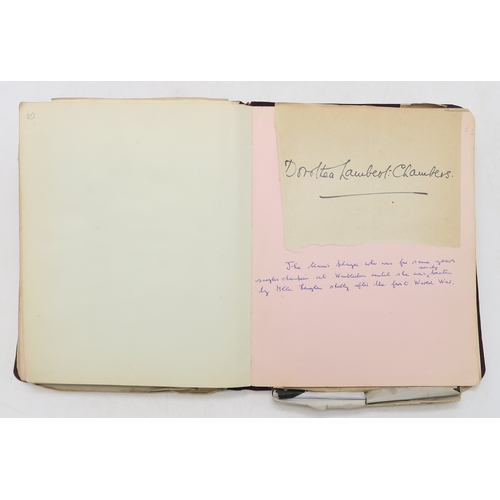 Dorothea Lambert-Chambers.
The tennis player who was for some years
singles champion at Wimbledon until she was beaten
by Mlle Lenglen shortly after the first World War.